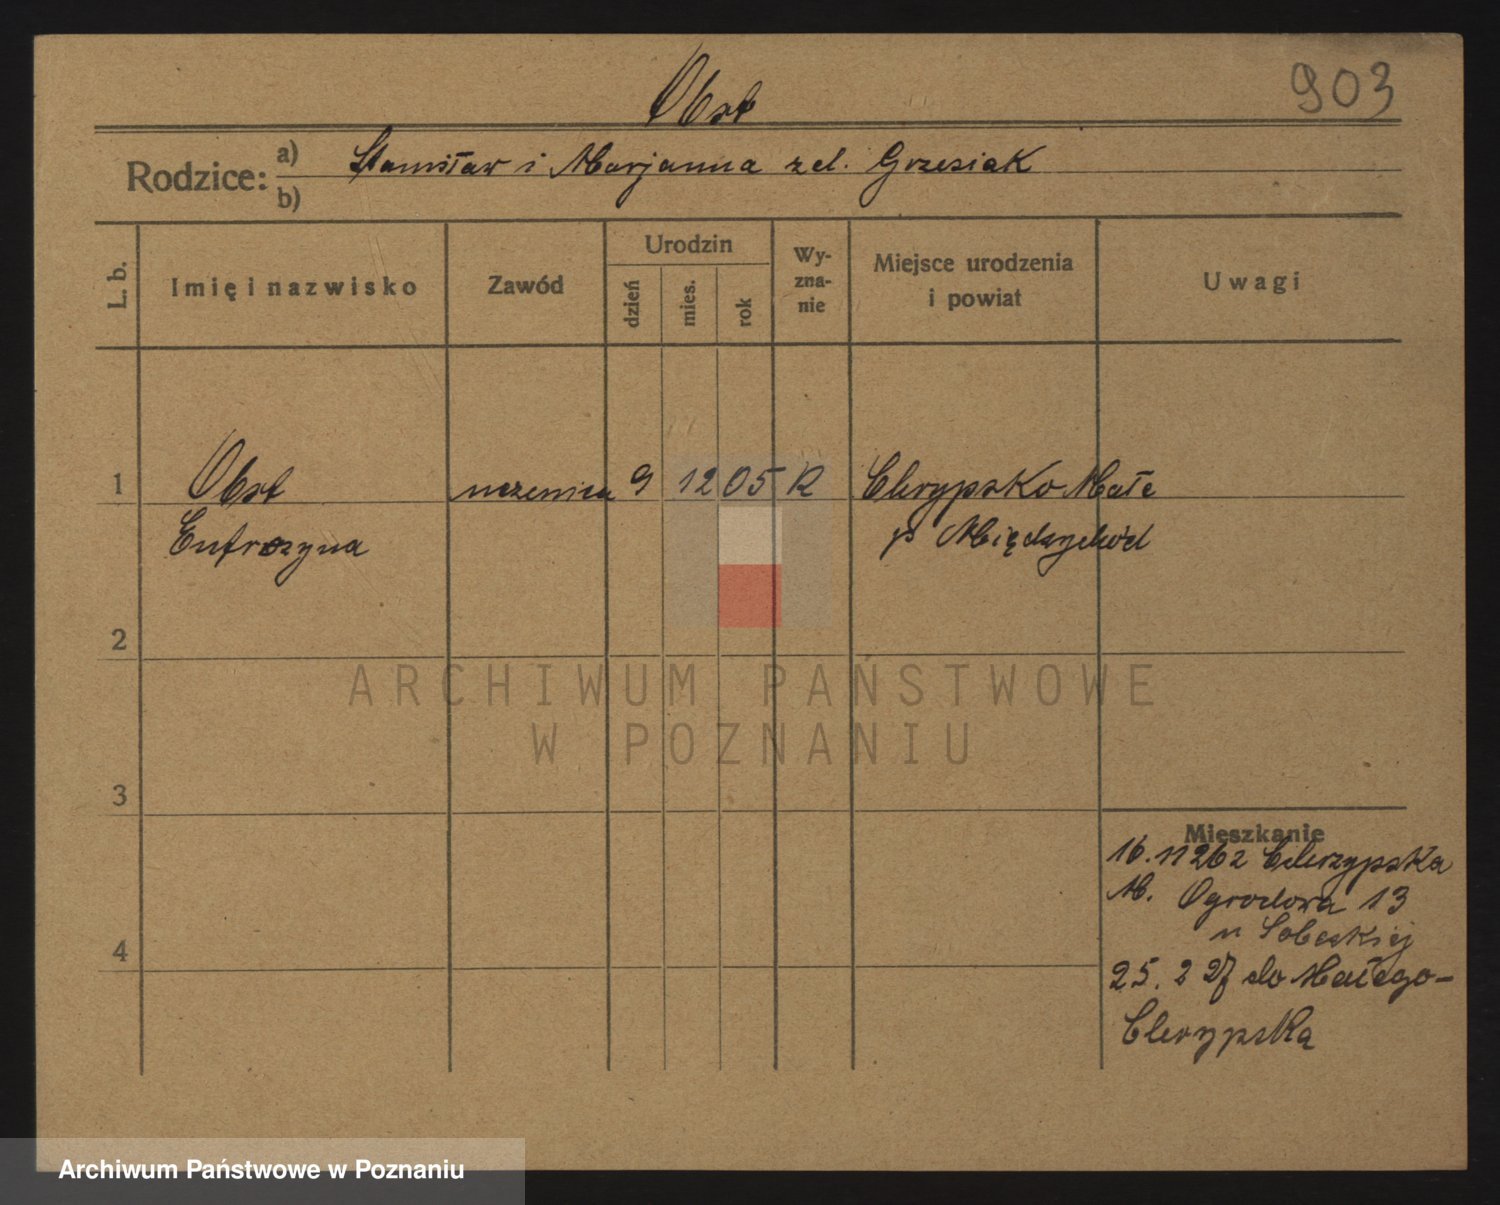 Obst
903
Rodzice: a) Stanisław i Marjanna z d. Grzesiak
b)
L. b. Imię i nazwisko Zawód Urodzin dzień mies. rok Wy-zna-nie Miejsce urodzenia i powiat Uwagi
1 Obst uczenica 9 12 05 R Chrzypsko Małe
Eufrozyna p Międzychód
2
ARCHIWUM PAŃSTWOWE
W POZNANIU
3
Mieszkanie
16. 11 26 z Chrzypska
M. Ogrodowa 13
u Sobeskiej
4
25. 2 27 do Małego-
Chrzypska
Archiwum Państwowe w Poznaniu